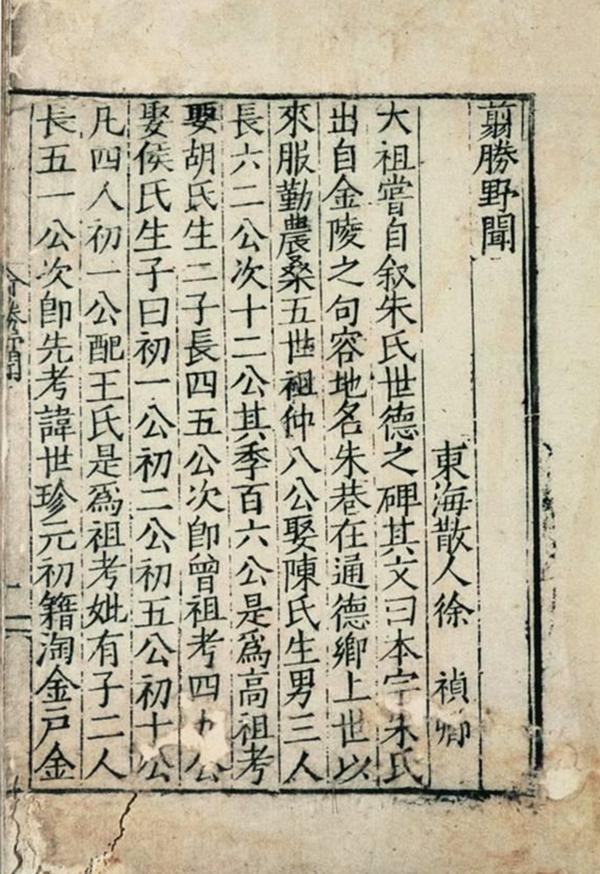 翦勝野聞
東海散人徐 禎卿
大祖嘗自叙朱氏世德之碑其文曰本宗朱氏
出自金陵之句容地名朱巷在通德鄉上世以
來服勤農桑五世祖仲八公娶陳氏生男三人
長六二公次十二公其季百六公是爲高祖考
娶胡氏生二子長四五公次即曾祖考四九公
娶侯氏生子曰初一公初二公初五公初十公
凡四人初一公配王氏是爲祖考妣有子二人
長五一公次即先考諱世珍元初籍淘金戸金